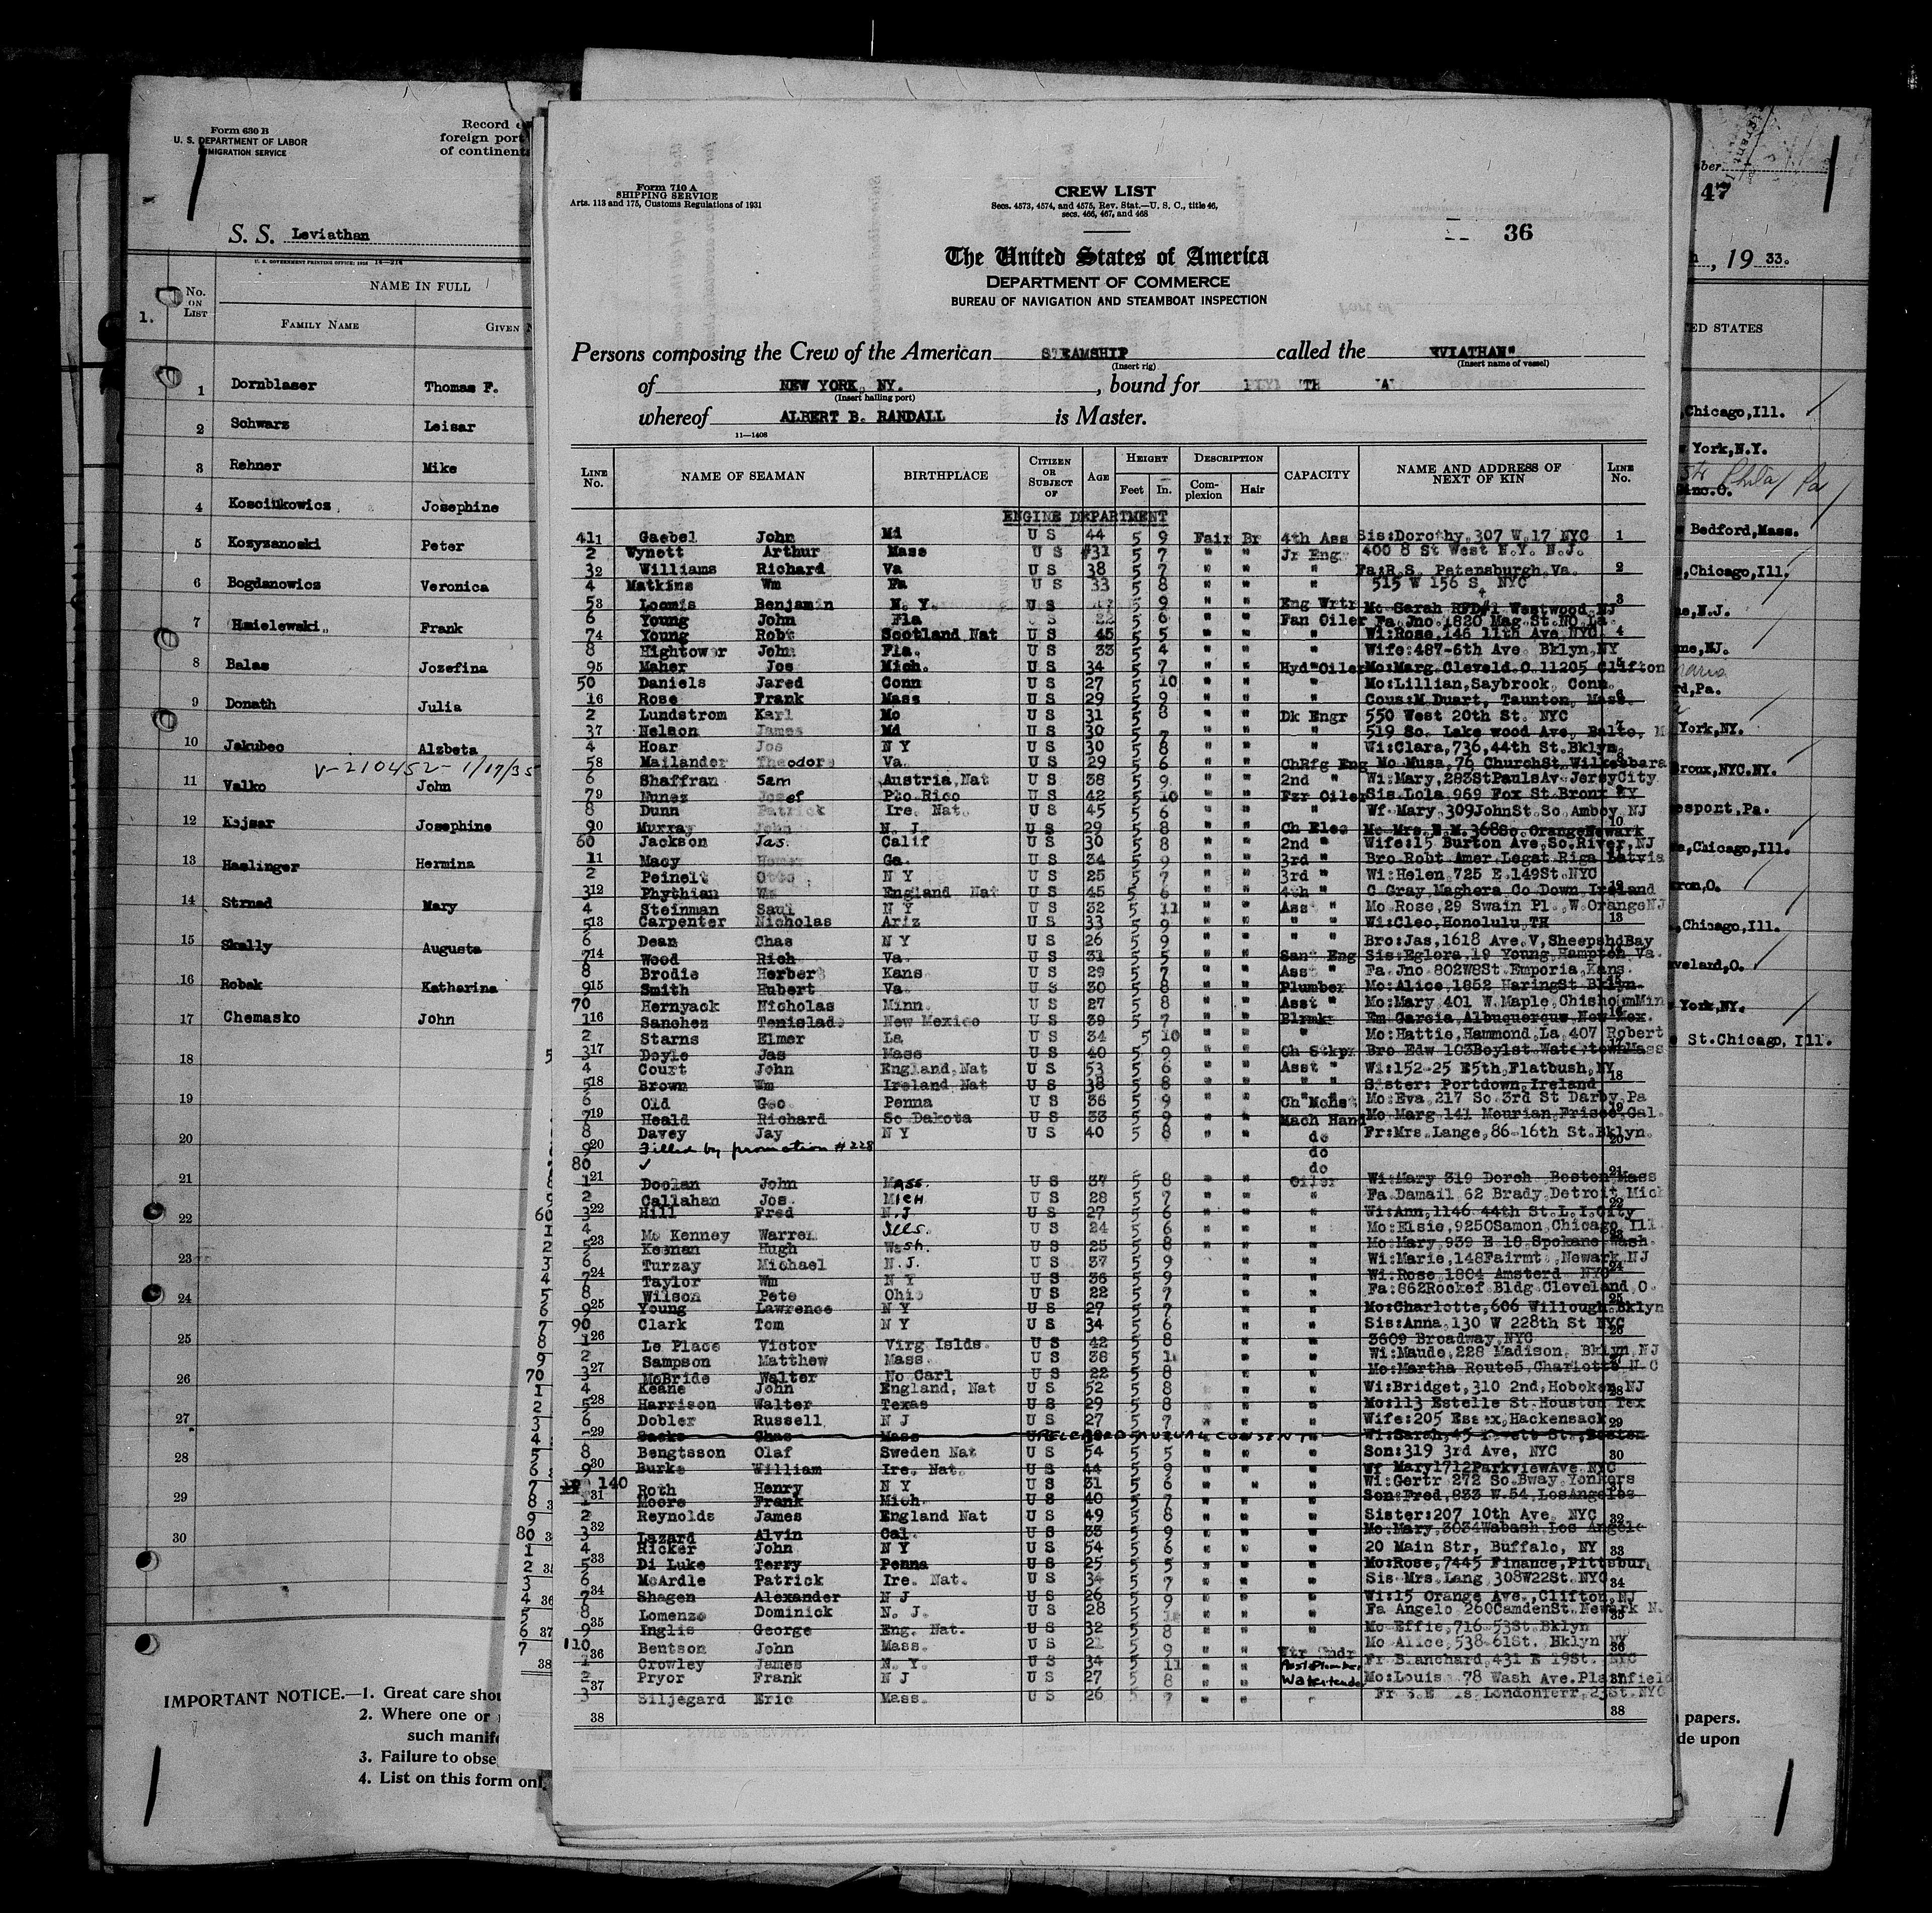 Form 630 B
U. S. DEPARTMENT OF LABOR
IMMIGRATION SERVICE
Record
foreign port
of continent
S. S. Leviathan
U. S. GOVERNMENT PRINTING OFFICE: 1928 14—214
No. ON LIST
NAME IN FULL
1.
FAMILY NAME GIVEN
1 Dornblaser Thomas F.
2 Schwarz Leisar
3 Rehner Mike
4 Kosciukowicz Josephine
5 Kozyzanoski Peter
6 Bogdanowicz Veronica
7 Hmielewski Frank
8 Balas Jozefina
9 Donath Julia
10 Jakubec Alzbeta
V-210452-1/17/35
11 Valko John
12 Kajsar Josephine
13 Haslinger Hermina
14 Strnad Mary
15 Skally Augusta
16 Robak Katharina
17 Chemasko John
18
19
20
21
22
23
24
25
26
27
28
29
30
IMPORTANT NOTICE.—1. Great care shou
2. Where one or
such manif
3. Failure to obse
4. List on this form onl
Form 710 A
SHIPPING SERVICE
Arts. 113 and 175, Customs Regulations of 1931
CREW LIST
Secs. 4573, 4574, and 4575, Rev. Stat.—U. S. C., title 46,
secs. 466, 467, and 468
36
The United States of America
DEPARTMENT OF COMMERCE
BUREAU OF NAVIGATION AND STEAMBOAT INSPECTION
Persons composing the Crew of the American STEAMSHIP called the EVIATHAN"
(Insert rig) (Insert name of vessel)
of NEW YORK, NY. , bound for
(Insert hailing port)
whereof ALBERT B. RANDALL is Master.
11—1408
LINE No. NAME OF SEAMAN BIRTHPLACE CITIZEN OR SUBJECT OF AGE HEIGHT Feet In. DESCRIPTION Complexion Hair CAPACITY NAME AND ADDRESS OF NEXT OF KIN LINE No.
ENGINE DEPARTMENT
411 Gaebel John Md U S 44 5 9 Fair Br 4th Ass Sis:Dorothy, 307 W.17 NYC 1
2 Wynett Arthur Mass U S #31 5 7 " " Jr Eng 400 8 St West N.Y. N.J.
32 Williams Richard Va U S 38 5 7 " " " Fa:R.S. Petersburgh,Va. 2
4 Matkins Wm Pa U S 33 5 8 " " " 515 W 156 S NYC
53 Loomis Benjamin N. Y. U S 5 9 " " Eng Wrtr Mo Sarah RFD#1 Westwood NJ 3
6 Young John Fla S 5 6 " " Fan Oiler Fa Jno 1820 Mag St.NO La.
74 Young Robt Scotland Nat U S 45 5 5 " " " Wi:Rose,146 11th Ave,NYC 4
8 Hightower John Fla. U S 33 5 4 " " " Wife:487-6th Ave Bklyn,NY
95 Maher Jos Mich. U S 34 5 7 " " Hyd Oiler Mo:Marg Cleveld O 11205 Clifton
50 Daniels Jared Conn U S 27 5 10 " " " Mo:Lillian,Saybrook, Conn.
16 Rose Frank Mass U S 29 5 9 " " " Cous:M.Duart, Taunton, Mass. 6
2 Lundstrom Karl Mo U S 31 5 8 " " Dk Engr 550 West 20th St. NYC
37 Nelson James Md U S 30 5 7 " " " 519 So. Lake wood Ave, Balto, M 7
4 Hoar Jos N Y U S 30 5 8 " " " Wi:Clara,736,44th St.Bklyn.
58 Mailander Theodore Va. U S 29 5 6 " " ChRfg Eng Mo Musa,76 ChurchSt.Wilkesbara
6 Shaffran Sam Austria,Nat U S 38 5 9 " " 2nd " Wi:Mary,283StPaulsAv JerseyCity
79 Nunez Josef Pto Rico U S 42 5 10 " " Fzr Oiler Sis Lola 969 Fox St.Bronx NY
8 Dunn Patrick Ire. Nat. U S 45 5 6 " " " Wf Mary,309JohnSt So Amboy NJ
910 Murray John N. J. U S 29 5 8 " " Ch Elec Mo Mrs. 368So.OrangeNewark 10
60 Jackson Jas. Calif U S 30 5 8 " " 2nd " Wife:15 Burton Ave,So.River,NJ
11 Macy Ga. U S 34 5 9 " " 3rd " Bro Robt Amer Legat Riga Latvia
2 Peinelt Otto N Y U S 25 5 7 " " 3rd " Wi:Helen 725 E.149St.NYC
312 Phythian Wm England Nat U S 45 5 6 " " 4th " C Gray Maghera Co Down Ireland 12
4 Steinman Saul N Y U S 32 5 11 " " Ass " Mo Rose,29 Swain Pl.,W.OrangeNJ
513 Carpenter Nicholas Ariz U S 33 5 9 " " " " Wi:Cleo,Honolulu,TH 13
6 Dean Chas N Y U S 26 5 9 " " " " Bro:Jas,1618 Ave.V,SheepshdBay
714 Wood Rich Va. U S 31 5 5 " " Sant Eng Sis:Eglora,19 Young,Hampton Va.
8 Brodie Herbert Kans U S 29 5 7 " " Asst " Fa Jno 802W8St.Emporia,Kans.
915 Smith Hubert Va. U S 30 5 8 " " Plumber Mo:Alice,1852 HaringSt Bklyn. 15
70 Hernyack Nicholas Minn. U S 27 5 8 " " Asst " Mo:Mary 401 W.Maple,ChisholmMin
116 Sanchez Tenislado New Mexico U S 39 5 7 " " Blrmkr Em Garcia,Albuquercus,New Mex. 16
2 Starns Elmer La U S 34 5 10 " " " Mo:Hattie,Hammond,La,407 Robert
317 Doyle Jas Mass U S 40 5 9 " " Ch Stkpr Bro Edw 103Boylst WatertownMass 17
4 Court John England,Nat U S 53 5 6 " " Asst " Wi:152-25 E5th,Flatbush,NY
518 Brown Wm Ireland Nat U S 38 5 8 " " " " Sister: Portdown,Ireland 18
6 Old Geo Penna U S 36 5 9 " " Ch Mchst Mo:Eva,217 So 3rd St Darby,Pa
719 Heald Richard So Dakota U S 33 5 9 " " Mach Hand Mo Marg 141 Mourian,Frisco,Cal. 19
8 Davey Jay N Y U S 40 5 8 " " do Fr:Mrs.Lange,86-16th St.Bklyn.
920 Filled by promotion #228 do 20
80 ✓ do
121 Doolan John Mass. U S 37 5 8 " " Oiler Wi:Mary 319 Dorch Boston Mass 21
2 Callahan Jos. Mich U S 28 5 7 " " " Fa Damail 62 Brady,Detroit,Mich
322 Hill Fred N.J U S 27 5 6 " " " Wi:Ann,1146 44th St.L.I.City 22
4 Mc Kenney Warren Ills. U S 24 5 6 " " " Mo:Elsie,925OSamon,Chicago Ill
523 Keenan Hugh Wash. U S 25 5 8 " " " Mo:Mary,939 E 18 Spokane Wash. 23
6 Turzay Michael N.J. U S 37 5 9 " Wi:Marie,148Fairmt.,Newark,NJ
724 Taylor Wm N Y U S 36 5 9 " Wi:Rose 1804 Amsterd NYC 24
8 Wilson Pete Ohio U S 22 5 7 " Fa:862Rockef Bldg Cleveland,O.
925 Young Lawrence N Y U S 27 5 7 " Mo:Charlotte,606 Willough.Bklyn 25
90 Clark Tom N Y U S 34 5 6 " Sis:Anna,130 W 228th St NYC
126 Le Place Victor Virg Islds. U S 42 5 8 " 3609 Broadway,NYC 26
2 Sampson Matthew Mass. U S 38 5 " Wi:Maude,228 Madison, Bklyn,NJ
327 McBride Walter No Carl U S 22 5 8 " Mo:Martha Route5,Charlotte N.C
4 Keane John England, Nat U S 52 5 8 " " Wi:Bridget,310 2nd,Hoboken NJ
528 Harrison Walter Texas U S 29 5 8 " " Mo:113 Estelle St.Houston Tex 28
6 Dobler Russell N J U S 27 5 7 " " " Wife:205 Essex,Hackensack
29 Sacks Chas Mass RELEASED MUTUAL CONSENT Wi:Sarah,45 St.,Boston 29
8 Bengtsson Olaf Sweden Nat U S 54 5 5 " " " Son:319 3rd Ave, NYC
930 Burke William Ire. Nat. U S 44 5 9 " " " Wf Mary1712ParkviewAve NYC 30
140 Roth Henry N Y U S 31 5 6 " " " Wi:Gertr 272 So.Bway Yonkers
131 Moore Frank Mich. U S 40 5 7 " " " Son:Fred,833 W.54,LosAngeles 31
2 Reynolds James England Nat U S 49 5 8 " " " Sister:207 10th Ave, NYC
332 Lazard Alvin Cal. U S 33 5 9 " " " Mo:Mary,3034Wabash Los Angele 32
4 Ricker John N Y U S 54 5 6 " " " 20 Main Str, Buffalo, NY
533 Di Luke Terry Penna U S 25 5 5 " " " Mo:Rose,7445 Finance,Pittsbur 33
6 McArdle Patrick Ire. Nat. U S 34 5 7 " " " Sis Mrs Lang 308W22St.NYC
734 Shagen Alexander N J U S 26 5 9 " " " Wi:15 Orange Ave.,Clifton,NJ 34
8 Lomenzo Dominick N. J. U S 28 5 " " " Fa Angelo 260CamdenSt.Newark N.
935 Inglis George Eng. Nat. U S 32 5 8 " " " Mo Effie,716-53St Bklyn 35
110 Bentson John Mass. U S 21 5 9 " " Wtr Tndr Mo Alice,538-61St. Bklyn NY
136 Crowley James N. Y. U S 34 5 11 " " Asst Plumber Fr Blanchard,431 E 19St. NYC 36
2 Pryor Frank N J U S 27 5 8 " " Watertender Mo:Louis 78 Wash Ave.Plainfield
337 Siljegard Eric Mass. U S 26 5 7 " " " Fr LondonTerr,23St.NYC 37
38 38
47
, 19 33.
ED STATES
,Chicago,Ill.
York,N.Y.
Phila Pa
Cinc.O.
Bedford,Mass.
,Chicago,Ill.
ne,N.J.
ne,NJ.
rd,Pa.
York,NY.
Bronx,NYC.NY.
esport,Pa.
,Chicago,Ill.
kron,O.
,Chicago,Ill.
eveland,O.
York,NY.
St.Chicago, Ill.
papers.
de upon